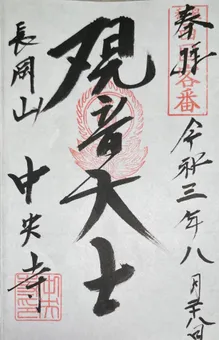 奉拝
令和三年八月廿八日
観音大士
長岡山
中央寺